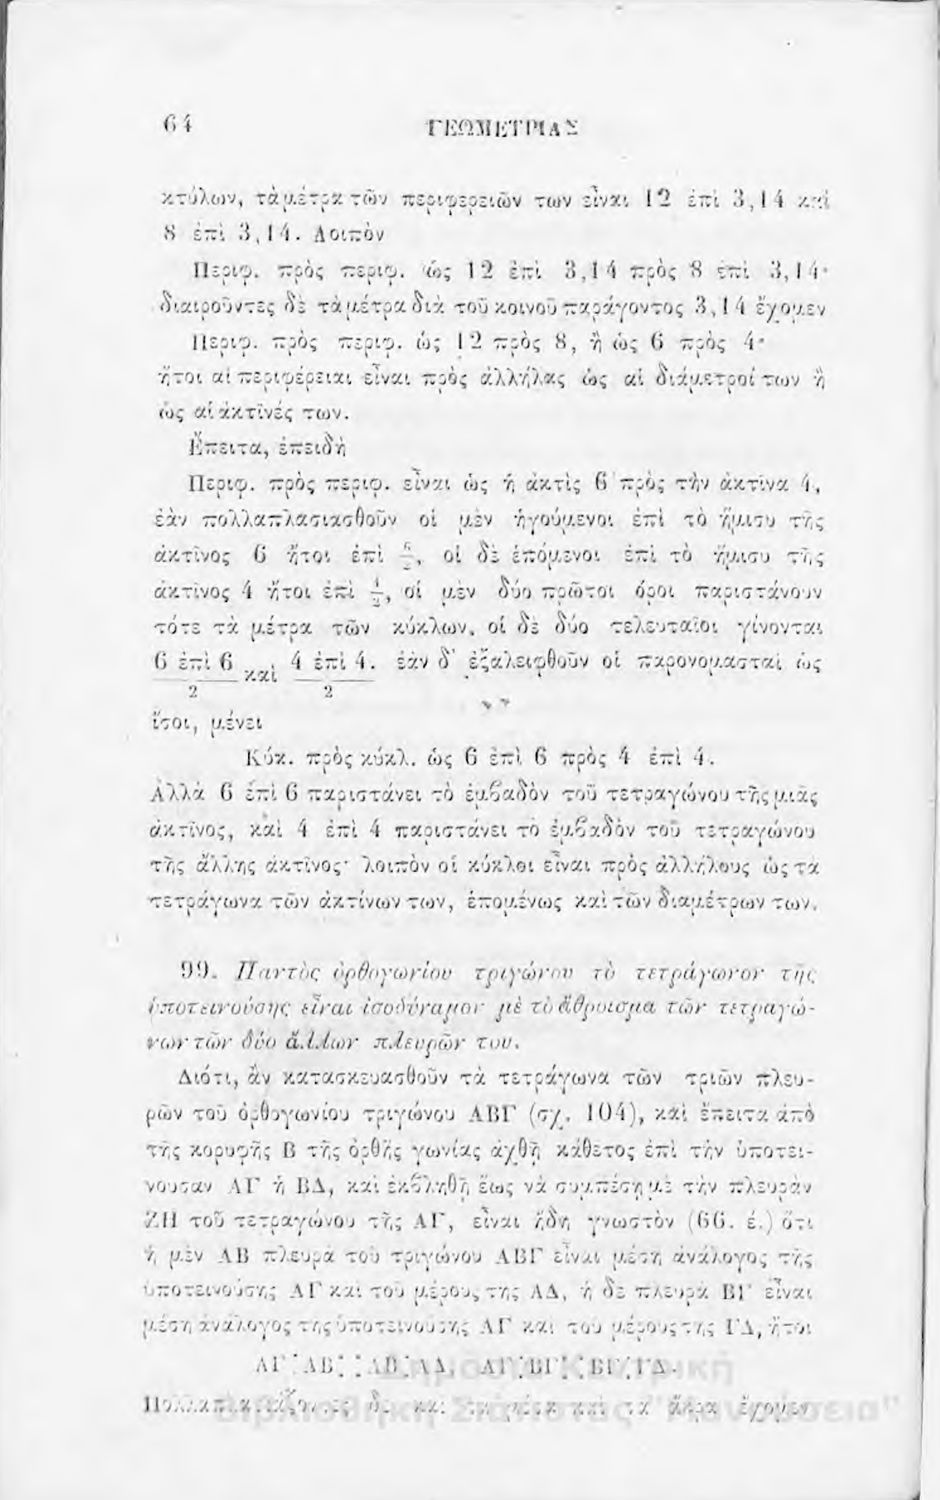 64 ΓΕΩΜΕΤΡΙΑΣ
κτύλων, τὰ μέτρα τῶν περιφερειῶν των εἶναι 12 ἐπὶ 3,14 καὶ
8 ἐπὶ 3,14. Λοιπὸν
Περιφ. πρὸς περιφ. ὡς 12 ἐπὶ 3,14 πρὸς 8 ἐπὶ 3,14·
διαιροῦντες δὲ τὰ μέτρα διὰ τοῦ κοινοῦ παράγοντος 3,14 ἔχομεν
Περιφ. πρὸς περιφ. ὡς 12 πρὸς 8, ἢ ὡς 6 πρὸς 4·
ἤτοι αἱ περιφέρειαι εἶναι πρὸς ἀλλήλας ὡς αἱ διάμετροί των ἢ
ὡς αἱ ἀκτῖνές των.
Ἔπειτα, ἐπειδὴ
Περιφ. πρὸς περιφ. εἶναι ὡς ἡ ἀκτὶς 6 πρὸς τὴν ἀκτῖνα 4,
ἐὰν πολλαπλασιασθοῦν οἱ μὲν ἡγούμενοι ἐπὶ τὸ ἥμισυ τῆς
ἀκτῖνος 6 ἤτοι ἐπὶ 6/2, οἱ δὲ ἑπόμενοι ἐπὶ τὸ ἥμισυ τῆς
ἀκτῖνος 4 ἤτοι ἐπὶ 4/2, οἱ μὲν δύο πρῶτοι ὅροι παριστάνουν
τότε τὰ μέτρα τῶν κύκλων, οἱ δὲ δύο τελευταῖοι γίνονται
6 ἐπὶ 6/2 καὶ 4 ἐπὶ 4/2. ἐὰν δ' ἐξαλειφθοῦν οἱ παρονομασταὶ ὡς
ἴσοι, μένει
Κύκ. πρὸς κύκλ. ὡς 6 ἐπὶ 6 πρὸς 4 ἐπὶ 4.
Ἀλλὰ 6 ἐπὶ 6 παριστάνει τὸ ἐμβαδὸν τοῦ τετραγώνου τῆς μιᾶς
ἀκτῖνος, καὶ 4 ἐπὶ 4 παριστάνει τὸ ἐμβαδὸν τοῦ τετραγώνου
τῆς ἄλλης ἀκτῖνος· λοιπὸν οἱ κύκλοι εἶναι πρὸς ἀλλήλους ὡς τὰ
τετράγωνα τῶν ἀκτίνων των, ἑπομένως καὶ τῶν διαμέτρων των.
99. Παντὸς ὀρθογωνίου τριγώνου τὸ τετράγωνον τῆς
ὑποτεινούσης εἶναι ἰσοδύναμον μὲ τὸ ἄθροισμα τῶν τετραγώ-
νων τῶν δύο ἄλλων πλευρῶν του.
Διότι, ἂν κατασκευασθοῦν τὰ τετράγωνα τῶν τριῶν πλευ-
ρῶν τοῦ ὀρθογωνίου τριγώνου ΑΒΓ (σχ. 104), καὶ ἔπειτα ἀπὸ
τῆς κορυφῆς Β τῆς ὀρθῆς γωνίας ἀχθῇ κάθετος ἐπὶ τὴν ὑποτεί-
νουσαν ΑΓ ἡ ΒΔ, καὶ ἐκβληθῇ ἕως νὰ συμπέσῃ μὲ τὴν πλευρὰν
ΖΗ τοῦ τετραγώνου τῆς ΑΓ, εἶναι ἤδη γνωστὸν (66. έ.) ὅτι
ἡ μὲν ΑΒ πλευρὰ τοῦ τριγώνου ΑΒΓ εἶναι μέση ἀνάλογος τῆς
ὑποτεινούσης ΑΓ καὶ τοῦ μέρους της ΑΔ, ἡ δὲ πλευρὰ ΒΓ εἶναι
μέση ἀνάλογος τῆς ὑποτεινούσης ΑΓ καὶ τοῦ μέρους της ΓΔ, ἤτοι
ΑΓ : ΑΒ :: ΑΒ : ΑΔ, ΑΓ : ΒΓ :: ΒΓ : ΓΔ.
Πολλαπλασιάζοντες δὲ καὶ τὰ μέσα καὶ τὰ ἄκρα ἔχομεν
Δημόσια Κεντρική
Βιβλιοθήκη Σιάτιστας "Μανούσεια"